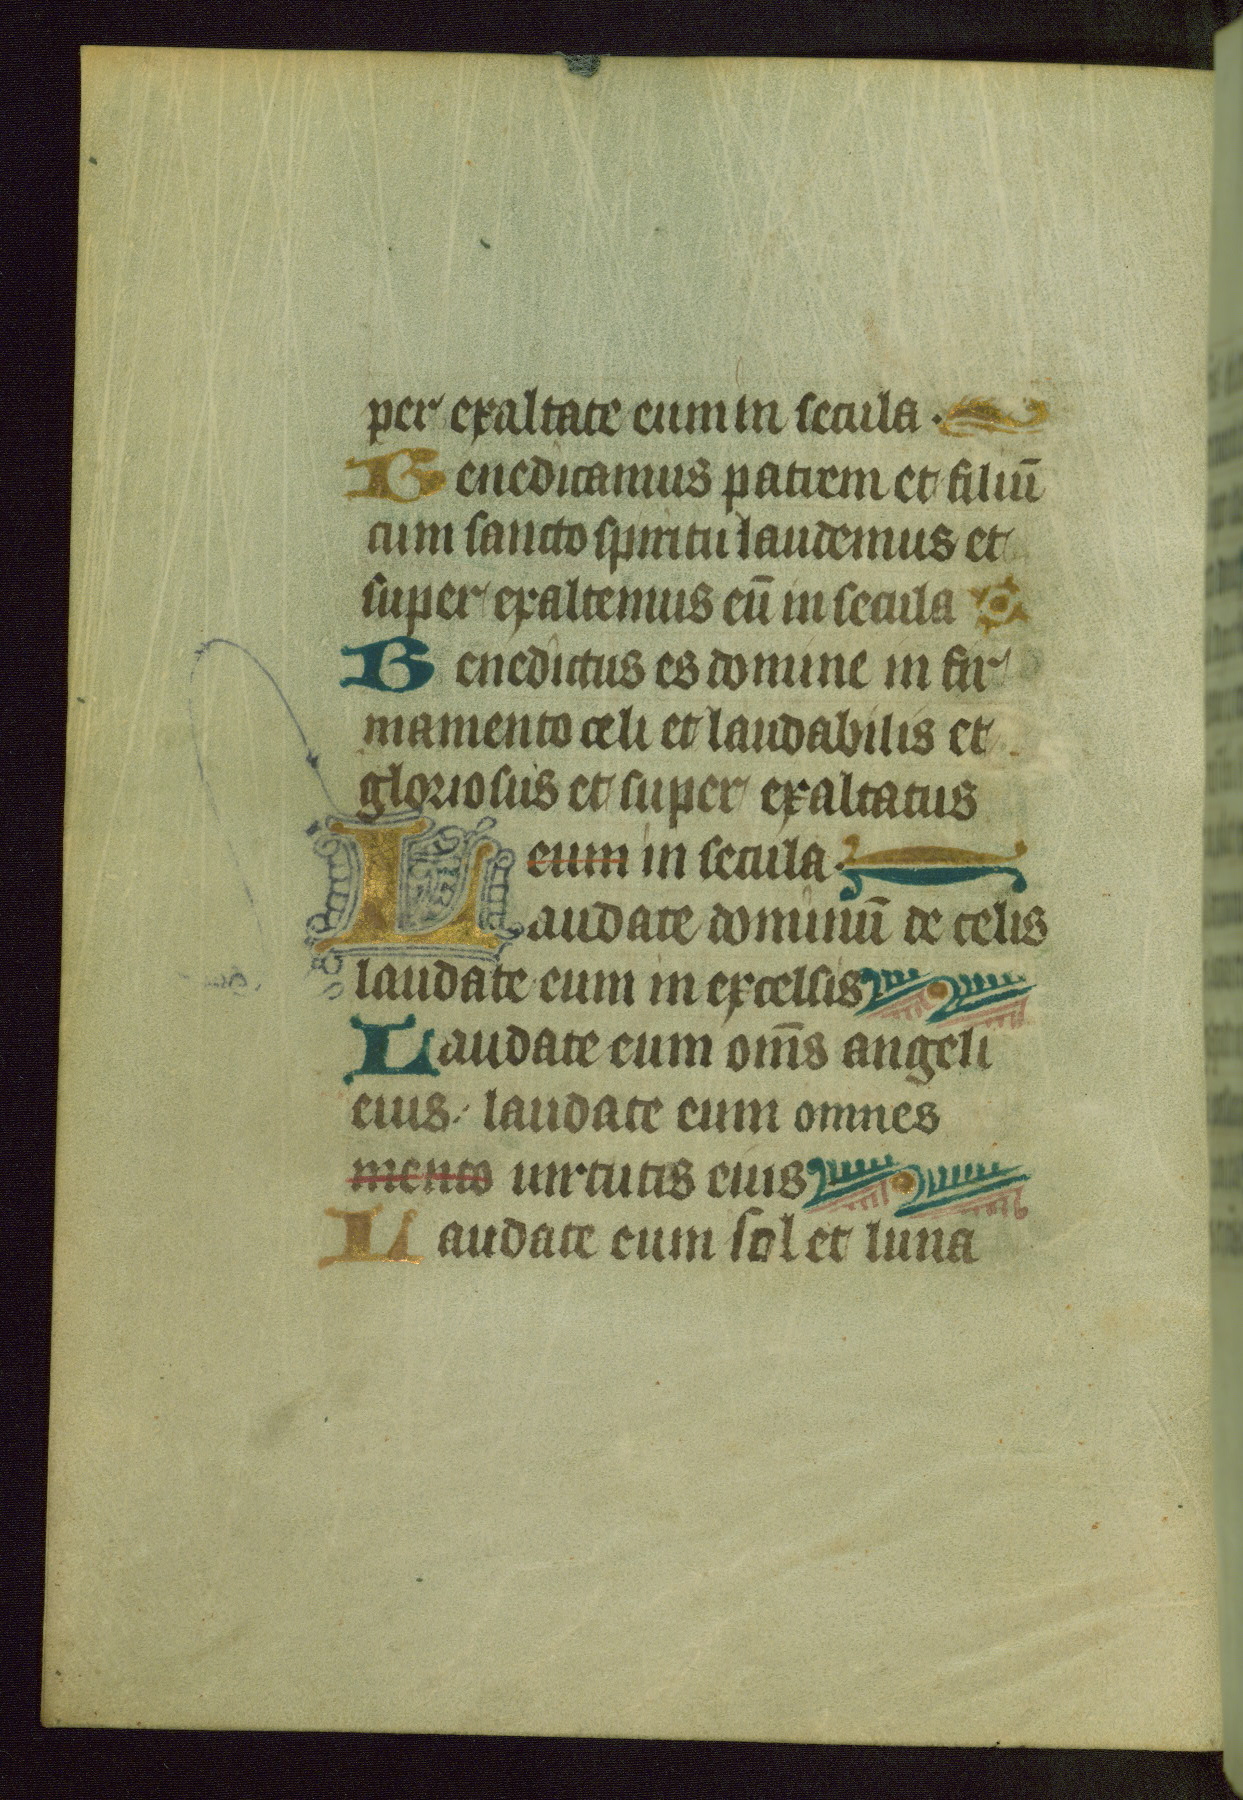 per exaltate eum in secula .
Benedicamus patrem et filiū
cum sancto spiritu laudemus et
super exaltemus eū in secula
Benedictus es domine in fir
mamento celi et laudabilis et
gloriosus et super exaltatus
eum in secula .
Laudate dominū de celis
laudate eum in excelsis
Laudate eum om̄s angeli
eius . laudate eum omnes
mento uirtutis eius
Laudate eum sol et luna